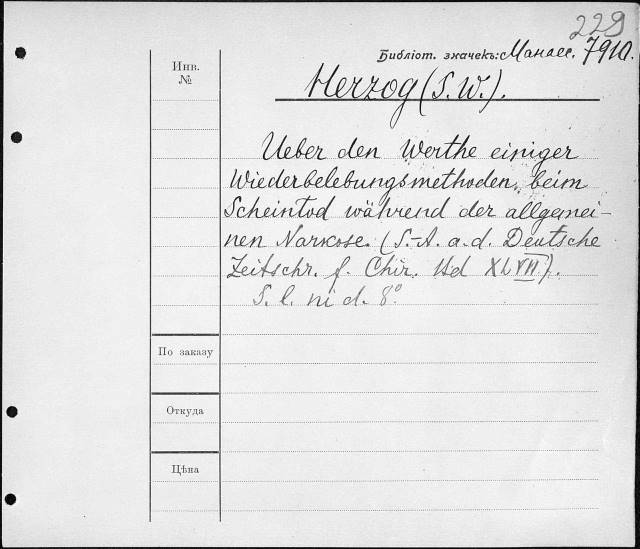 229
Библіот. значекъ: Манасс. 7910.
Инв.
№
Herzog (S. W.).
Ueber den Werthe einiger
Wiederbelebungsmethoden beim
Scheintod während der allgemei-
nen Narkose. (S.-A. a. d. Deutsche
Zeitschr. f. Chir. Bd XLVII).
S. l. ni d. 8°.
По заказу
Откуда
Цѣна